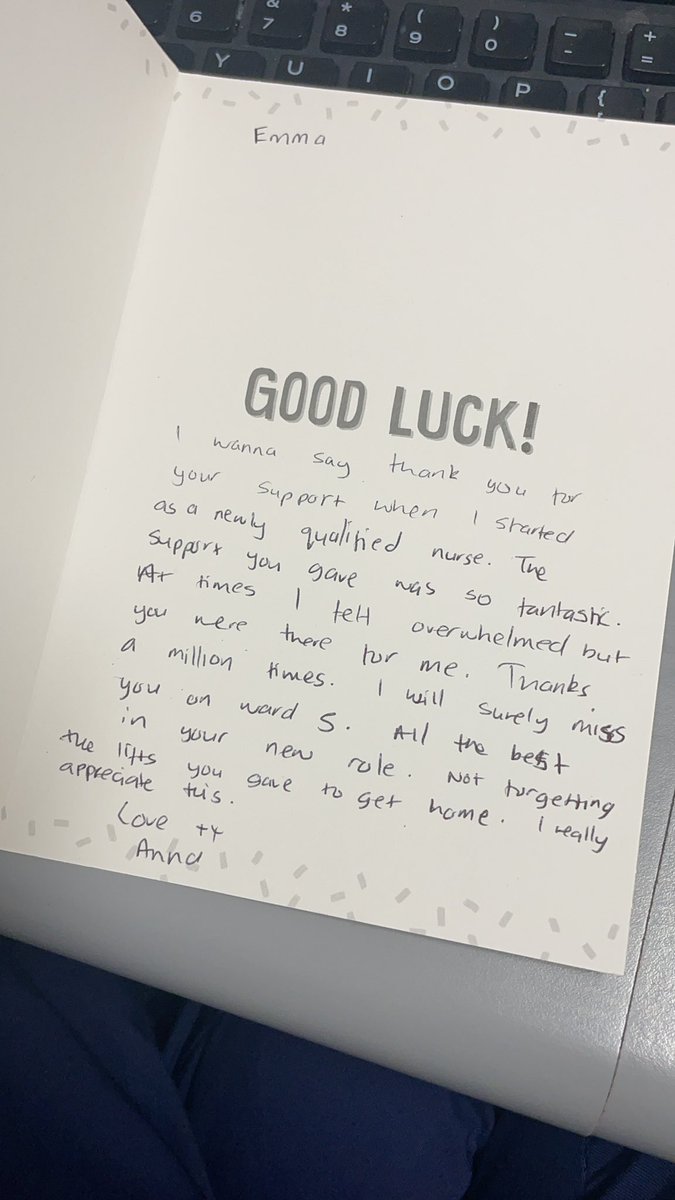 6 & 7 * 8 ( 9 ) 0 - + =
Y U I O P {
Emma
GOOD LUCK!
I wanna say thank you for
your support when I started
as a newly qualified nurse. The
support you gave was so fantastic.
At times I felt overwhelmed but
you were there for me. Thanks
a million times. I will surely miss
you on ward 5. All the best
in your new role. Not forgetting
the lifts you gave to get home. I really
appreciate this.
Love
Anna